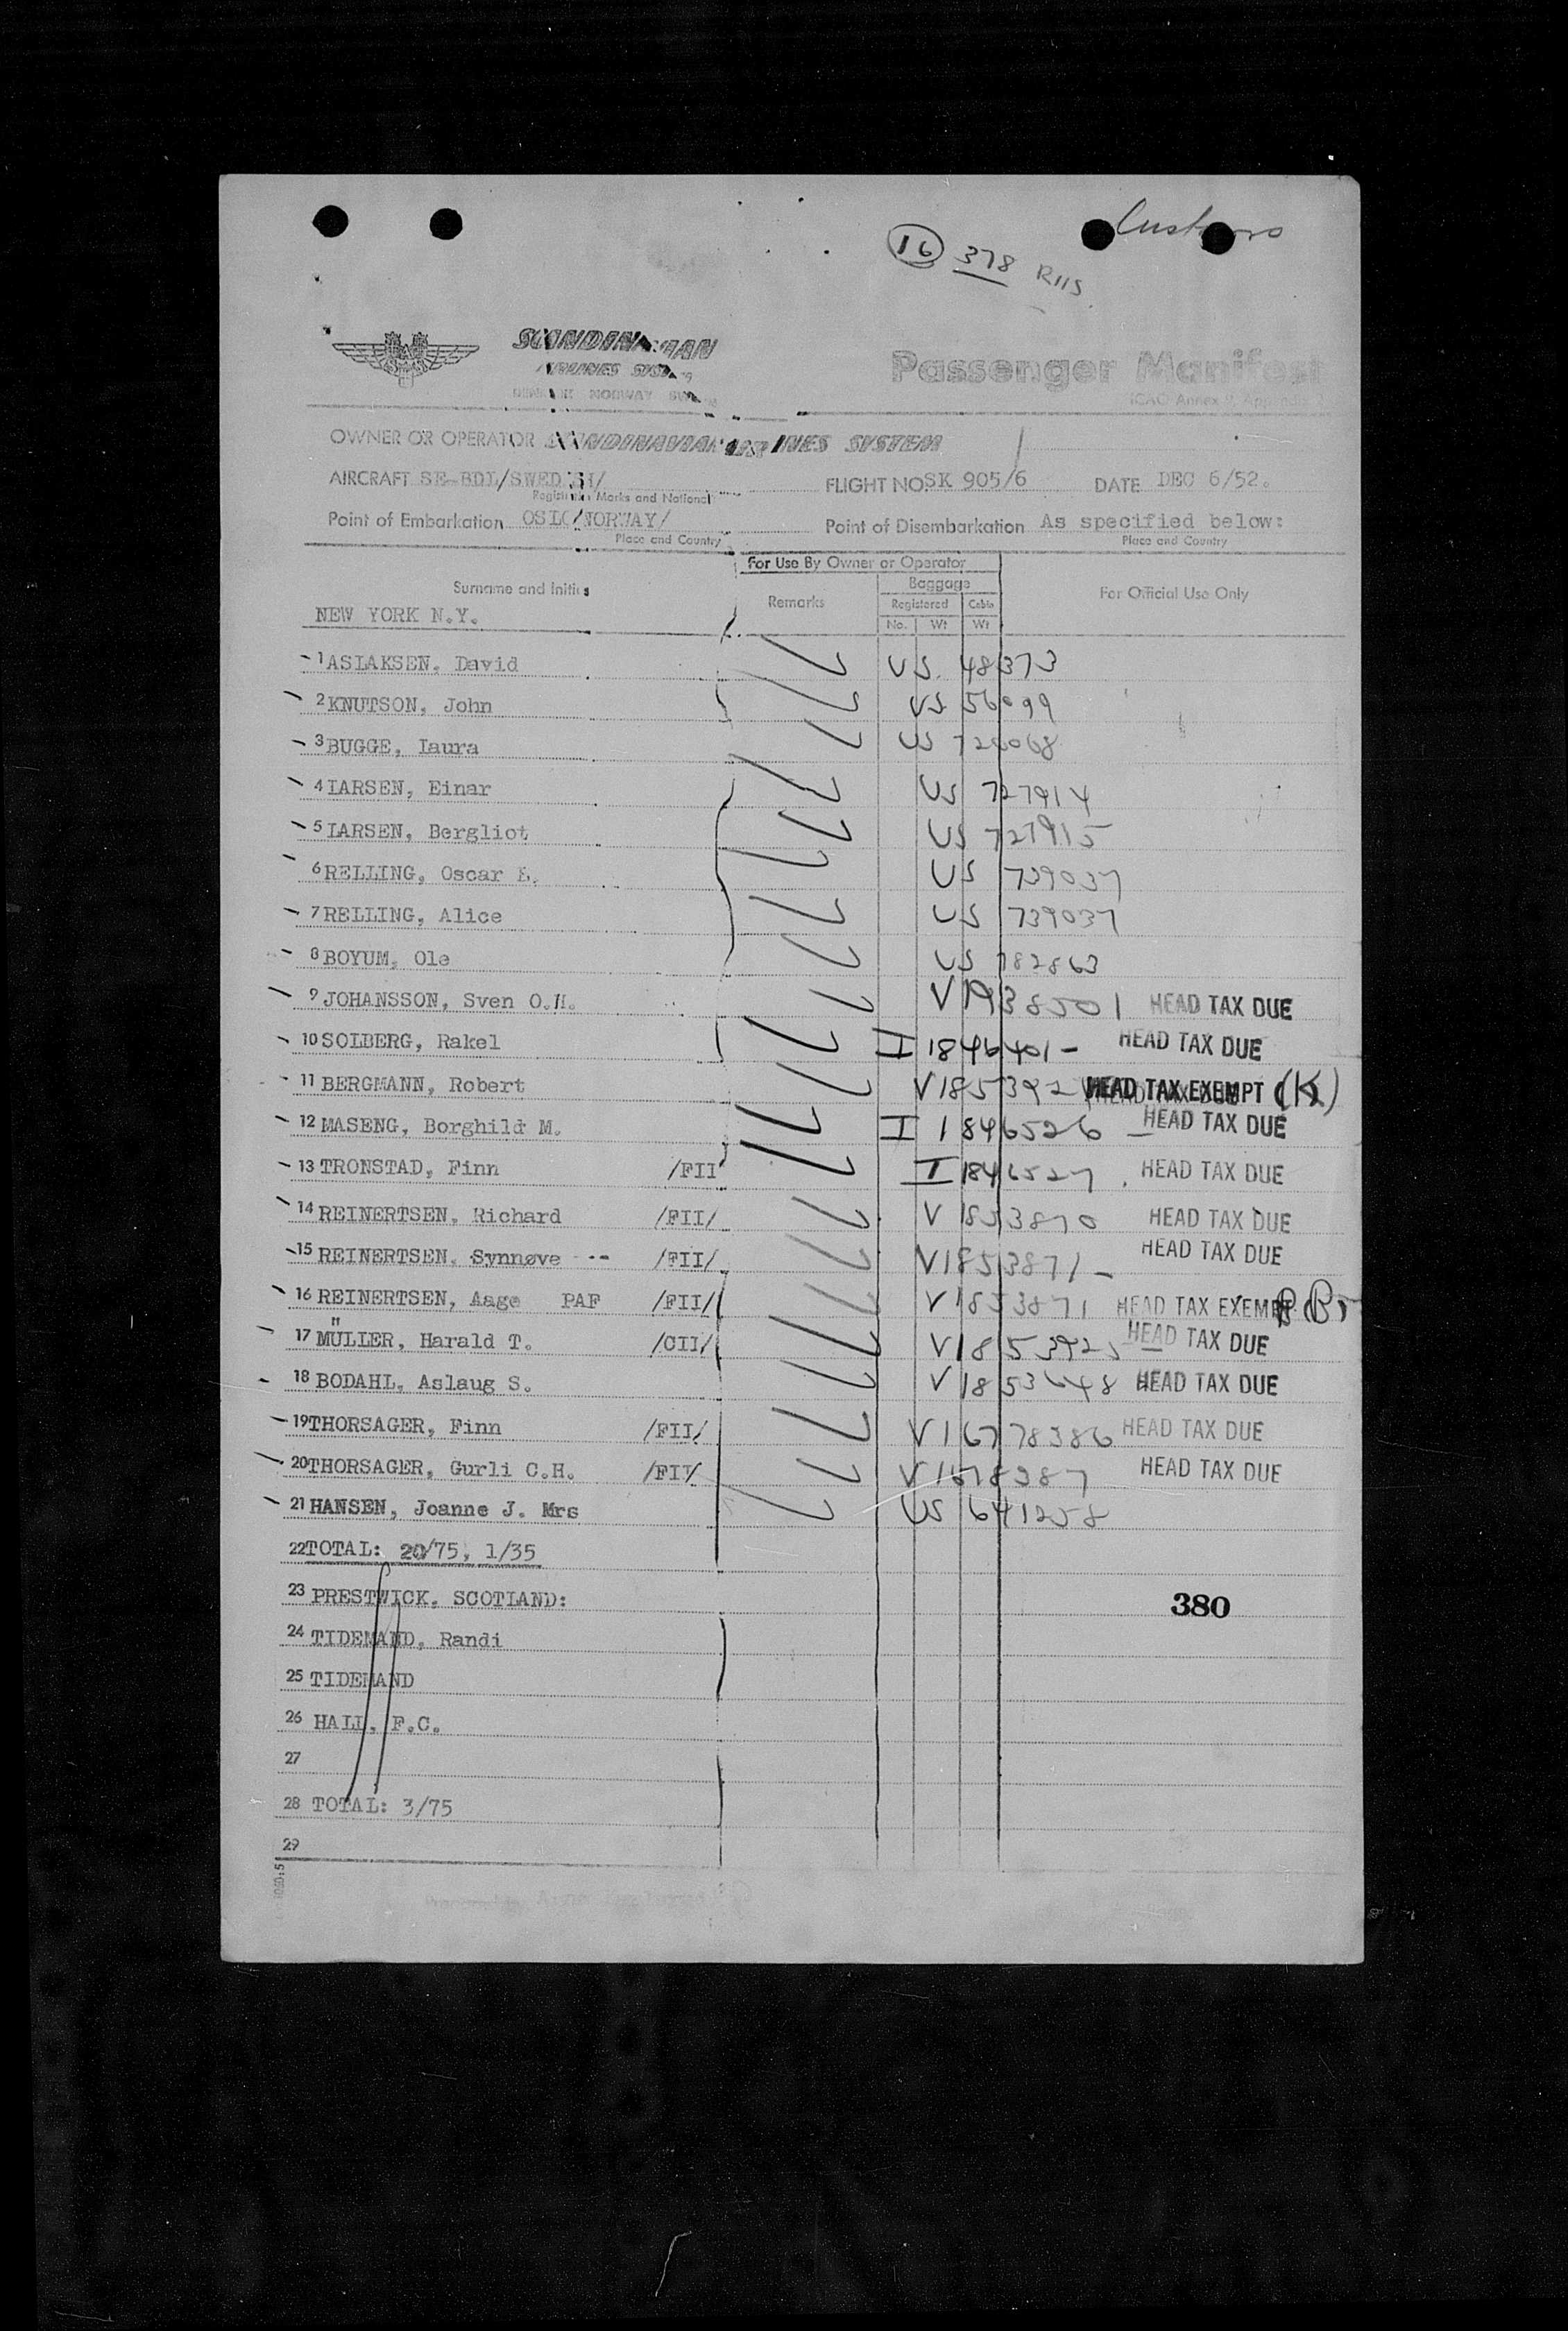 Customs
16 378 RIIS
SCANDINAVIAN
AIRLINES SYSTEM
DENMARK NORWAY SWEDEN
Passenger Manifest
ICAO Annex 9, Appendix
OWNER OR OPERATOR SCANDINAVIAN AIRLINES SYSTEM
AIRCRAFT SE-BDL/SWEDISH/ FLIGHT NO. SK 905/6 DATE DEC 6/52.
Registration Marks and Nationality
Point of Embarkation OSLO/NORWAY/ Point of Disembarkation As specified below:
Place and Country Place and Country
For Use By Owner or Operator
Surname and initials Remarks Baggage For Official Use Only
Registered Cabin
NEW YORK N.Y. No. Wt Wt
1 ASLAKSEN, David US. 48373
2 KNUTSON, John US 56099
3 BUGGE, Laura US 728068
4 LARSEN, Einar US 727914
5 LARSEN, Bergliot US 727915
6 RELLING, Oscar E. US 739037
7 RELLING, Alice US 739037
8 BOYUM, Ole US 782863
9 JOHANSSON, Sven O.H. V 1938501 HEAD TAX DUE
10 SOLBERG, Rakel I 1846401 - HEAD TAX DUE
11 BERGMANN, Robert V 185392 HEAD TAX EXEMPT (K)
12 MASENG, Borghild M. I 1846526 - HEAD TAX DUE
13 TRONSTAD, Finn /FII I 1846527 . HEAD TAX DUE
14 REINERTSEN, Richard /FII/ V 1853870 HEAD TAX DUE
15 REINERTSEN, Synnøve --- /FII/ V 1853871 - HEAD TAX DUE
16 REINERTSEN, Aage PAF /FII/ V 1853871 HEAD TAX EXEMPT
17 MÜLLER, Harald T. /CII/ V 1853925 HEAD TAX DUE
18 BODAHL, Aslaug S. V 1853648 HEAD TAX DUE
19 THORSAGER, Finn /FII/ V 1678386 HEAD TAX DUE
20 THORSAGER, Gurli C.H. /FII/ V 1678387 HEAD TAX DUE
21 HANSEN, Joanne J. Mrs US 641258
22 TOTAL: 20/75, 1/35
23 PRESTWICK, SCOTLAND: 380
24 TIDEMAND, Randi
25 TIDEMAND
26 HALL, F.C.
27
28 TOTAL: 3/75
29